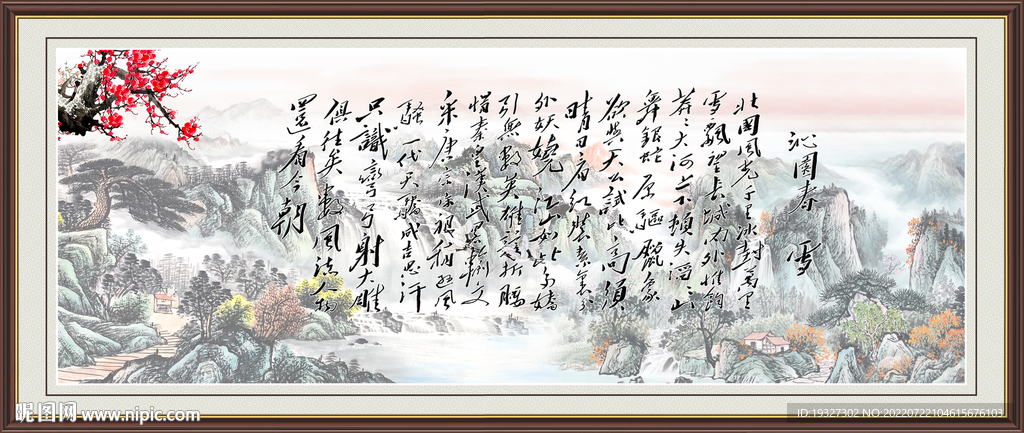 沁園春 雪
北國風光千里冰封萬里
雪飄望長城內外惟餘
莽〻大河上下頓失滔〻山
舞銀蛇原驅臘象
欲與天公試比高須
晴日看紅裝素裹分
外妖嬈江山如此多嬌
引無數英雄競折腰
惜秦皇漢武略輸文
采唐宗宋祖稍遜風
騷一代天驕成吉思汗
只識彎弓射大雕
俱往矣數風流人物
還看今朝
昵图网 www.nipic.com
ID:19327302 NO:20220722104615676103